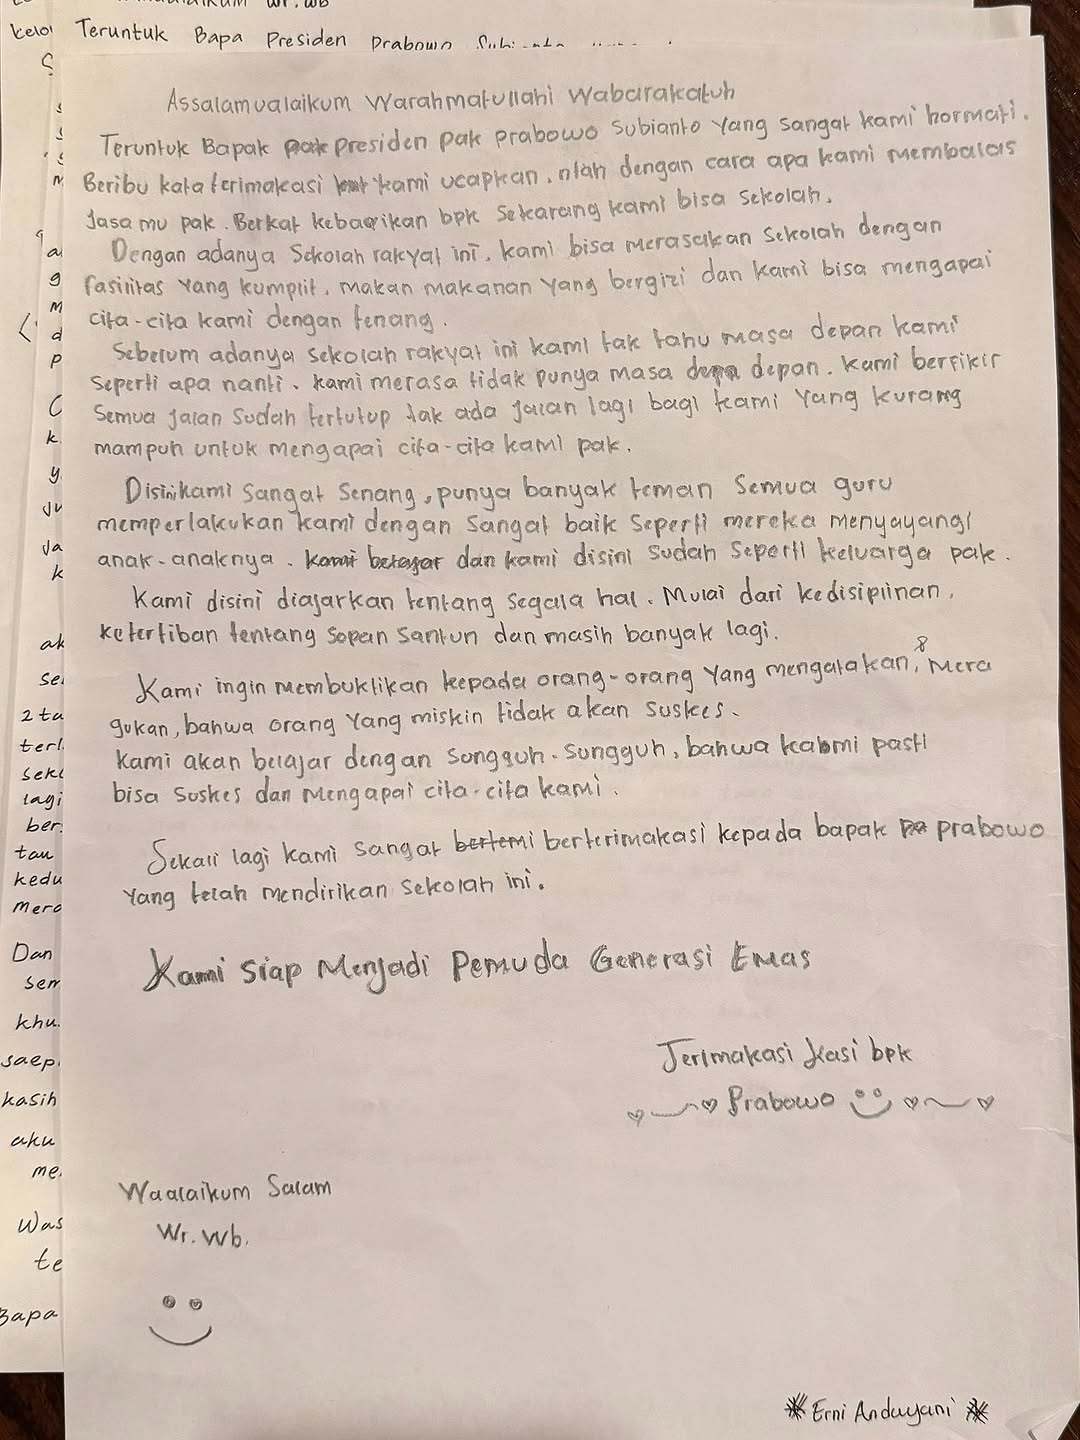 Teruntuk Bapa Presiden Prabowo
Assalamualaikum Warahmatullahi Wabarakatuh
Teruntuk Bapak pak presiden pak prabowo Subianto Yang Sangat kami hormati.
Beribu kata terimakasi kami ucapkan. ntah dengan cara apa kami membalas
Jasa mu pak. Berkat kebaqikan bpk Sekarang kami bisa Sekolah.
Dengan adanya Sekolah rakyat ini. kami bisa merasakan Sekolah dengan
fasilitas Yang kumplit. makan makanan yang bergizi dan kami bisa mengapai
cita-cita kami dengan tenang.
Sebelum adanya sekolah rakyat ini kami tak tahu masa depan kami
Seperti apa nanti. kami merasa tidak punya masa depa depan. kami berfikir
Semua jalan Sudah tertutup tak ada jalan lagi bagi kami Yang kurang
mampuh untuk mengapai cita-cita kami pak.
Disini kami Sangat Senang, punya banyak teman Semua guru
memperlakukan kami dengan Sangat baik Seperti mereka menyayangi
anak-anaknya. kami belajar dan kami disini Sudah Seperti keluarga pak.
Kami disini diajarkan tentang Segala hal. Mulai dari kedisiplinan,
ketertiban tentang Sopan Santun dan masih banyak lagi.
Kami ingin membuktikan kepada orang-orang Yang mengatakan, & Mera
gukan, bahwa orang Yang miskin tidak akan Suskes.
Kami akan belajar dengan Sungguh-Sungguh, bahwa kabmi pasti
bisa Suskes dan Mengapai cita-cita kami.
Sekali lagi kami Sangat bertemi berterimakasi kepada bapak Pa prabowo
Yang telah mendirikan Sekolah ini.
Kami Siap Menjadi Pemuda Generasi Emas
Terimakasi kasi bpk
Prabowo
Waalaikum Salam
Wr. Wb.
Erni Andayani